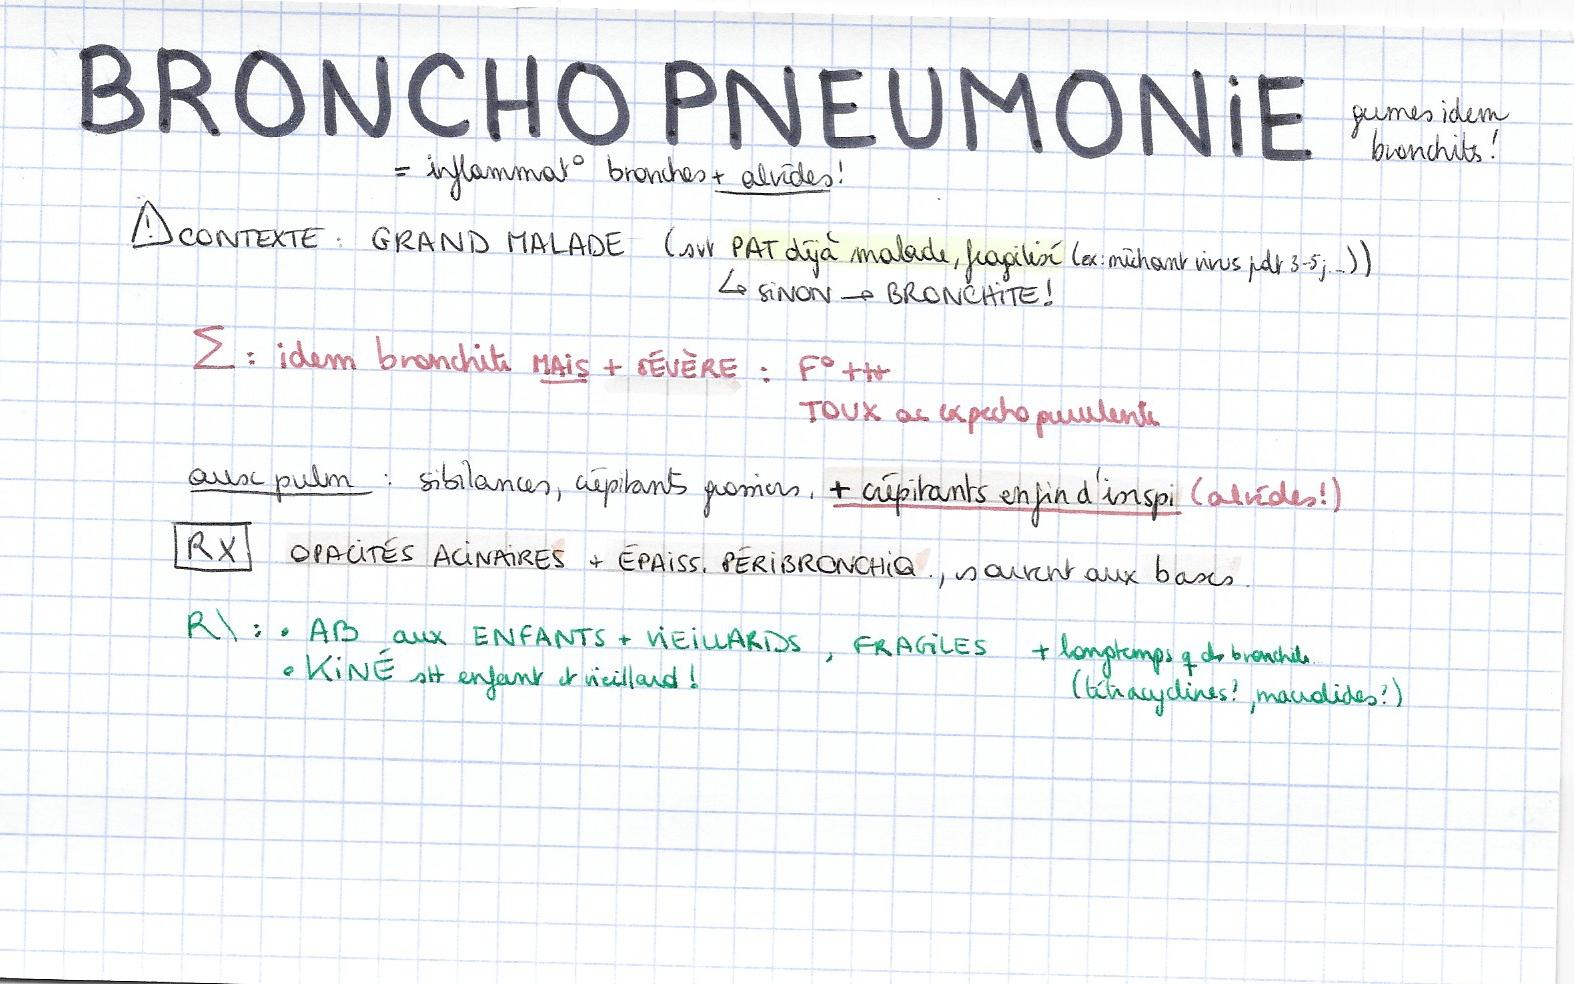 BRONCHOPNEUMONIE
germes idem
bronchite!
= inflammat° bronches + alvéoles!
⚠ CONTEXTE : GRAND MALADE (sur PAT déjà malade, fragilisé (ex: méchant virus pdt 3-5j...))
↳ SINON → BRONCHITE!
Σ : idem bronchite MAIS + SÉVÈRE : F° +++
TOUX ac expecto purulente
ausc pulm : sibilances, crépitants grossiers, + crépitants en fin d'inspi (alvéoles!)
RX OPACITÉS ACINAIRES + ÉPAISS. PÉRIBRONCHIQ., souvent aux bases.
R\ : • AB aux ENFANTS + VIEILLARDS, FRAGILES + longtemps q ds bronchite.
(tétracyclines?, macrolides?)
• KINÉ stt enfant et vieillard!